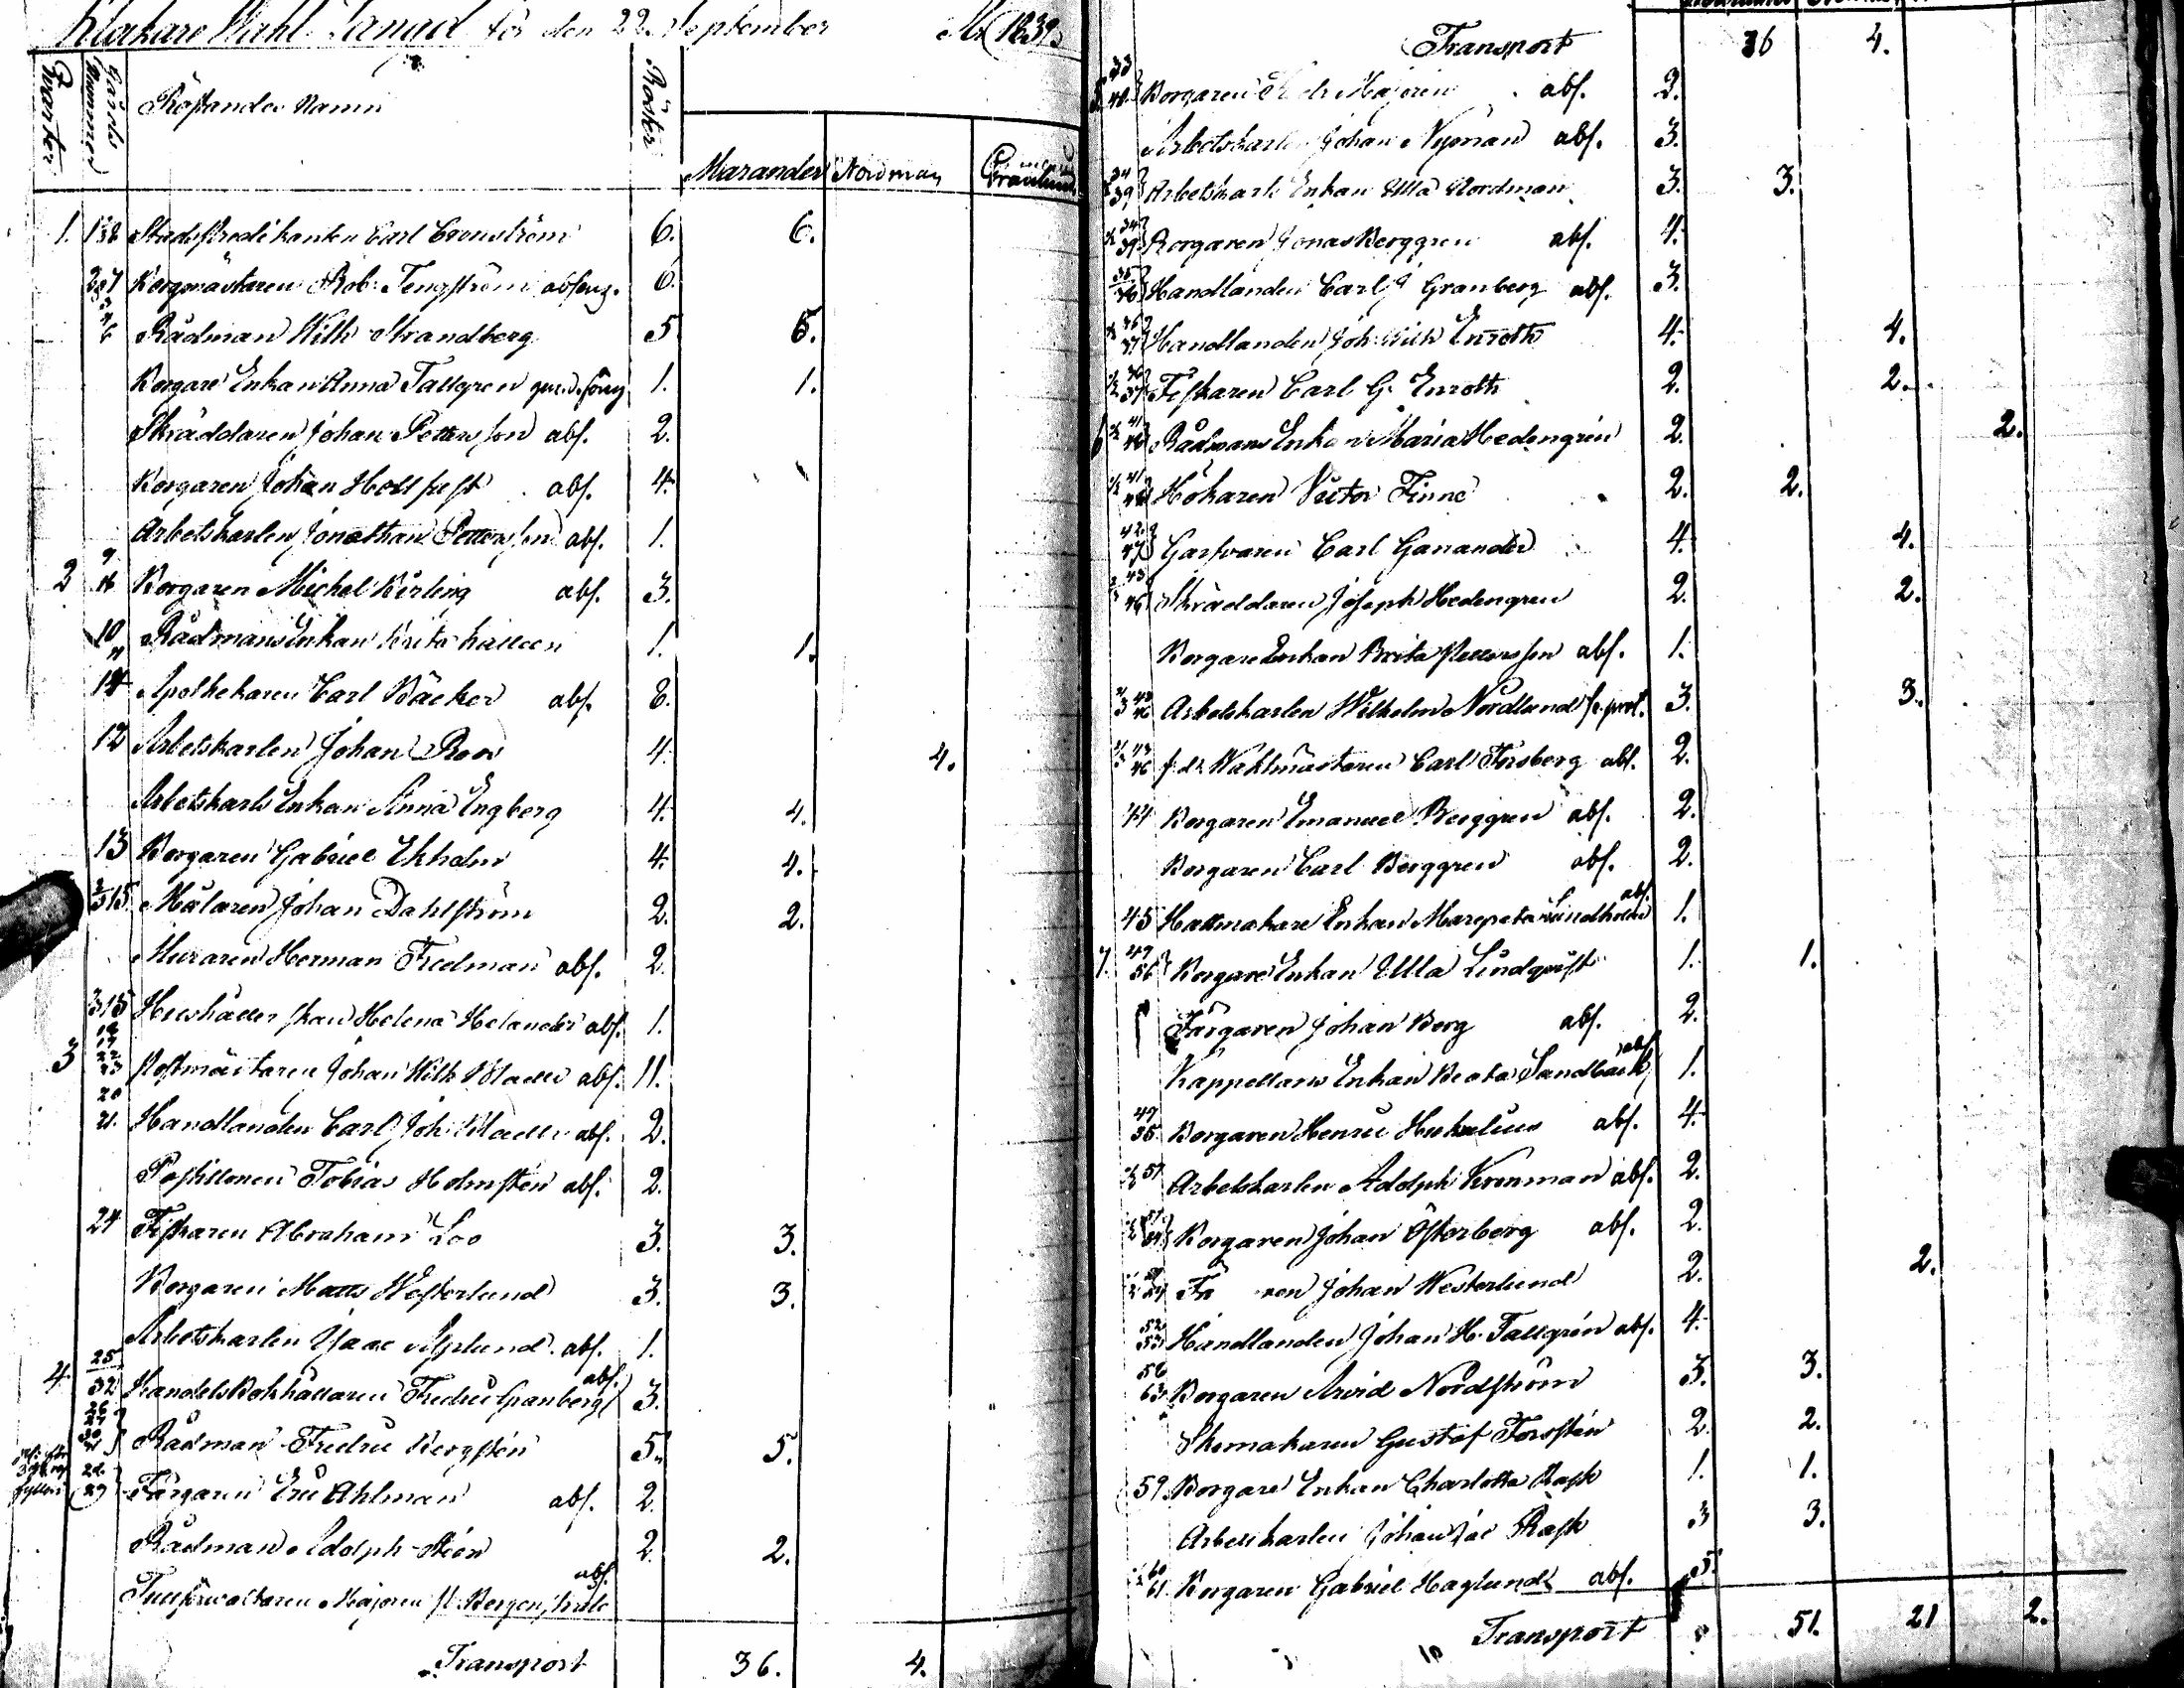 Klockare Wahl Längd för den 22. September År 1839.
Qvarter Gårds Nummer Röstandes Namn Röster Marander Nordman Grönlund
1. Stadspredikanten Carl Cronström 6. 6.
Borgmästaren Rob. Tengström 6.
Rådman Wilh. Strandberg 5 5.
Borgare Enkan Anna Tallgren 1. 1.
Skräddaren Johan Petterson abs. 2.
Borgaren Johan abs. 4.
Arbetskarlen Jonathan Petterson abs. 1.
2 9 Borgaren Michel Kerling abs. 3.
10 11 Rådmans Enkan Brita 1. 1.
14 Apothekaren Carl Bäcker abs. 8.
12 Arbetskarlen Johan Roos 4. 4.
Arbetskarls Enkan Anna Engberg 4. 4.
13 Borgaren Gabriel Ekholm 4. 4.
15 Målaren Johan Dahlström 2. 2.
Muraren Herman Fredman abs. 2.
15 Hushållerskan Helena Helander abs. 1.
3 Postmästaren Johan Wilh. abs. 11.
21. Handlanden Carl Joh. abs. 2.
Postillonen Tobias Holmstén abs. 2.
24 Fiskaren Abraham Loo 3. 3.
Borgaren Matts Westerlund 3. 3.
Arbetskarlen Isaac Asplund abs. 1.
4 25 32 Handels Bokhållaren Fredric Granberg abs. 3.
Rådman Fredric Bergstén 5. 5.
29 Färgaren Eric Ahlman abs. 2.
Rådman Adolph Steen 2. 2.
Majoren abs.
Transport 36. 4.
Transport 36 4.
5. 33 40 Borgaren Majorin abs. 2.
Arbetskarlen Johan Nyman abs. 3.
34 39 Arbetskarls Enkan Ulla Nordman 3. 3.
34 39 Borgaren Jonas Berggren abs. 4.
35 36 Handlanden Carl J. Granberg abs. 3.
37 Handlanden Joh. Wilh. Enroth 4. 4.
37 Fiskaren Carl G. Enroth 2. 2.
6 41 Rådmans Enkan Maria Hedengrén 2. 2.
41 Hökaren Victor Finne 2. 2.
42 47 Garfvaren Carl Ganander 4. 4.
43 46 Skräddaren Joseph Hedengren 2. 2.
Borgare Enkan Brita Petterson abs. 1.
43 46 Arbetskarlen Wilhelm Nordlund 3. 3.
43 46 f.d. Wahtmästaren Carl Forsberg abs. 2.
44 Borgaren Emanuel Berggren abs. 2.
Borgaren Carl Berggren abs. 2.
45 Hattmakare Enkan Margreta Lindholm abs. 1.
7. 49 56 Borgare Enkan Ulla Lindqvist 1. 1.
Färgaren Johan Berg abs. 2.
Kappellans Enkan Beata Sandbäck abs. 1.
Borgaren Henric abs. 4.
51 Arbetskarlen Adolph Kronman abs. 2.
Borgaren Johan Österberg abs. 2.
Johan Westerlund 2. 2.
52 53 Handlanden Johan H. Tallgrén abs. 4.
58 63 Borgaren Arvid Nordström 3. 3.
Skomakaren Gustaf Forstén 2. 2.
59. Borgare Enkan Charlotta Rask 1. 1.
Arbetskarlen Johan Jac Rask 3 3.
60 61 Borgaren Gabriel Haglund abs. 5.
Transport 51. 21 2.